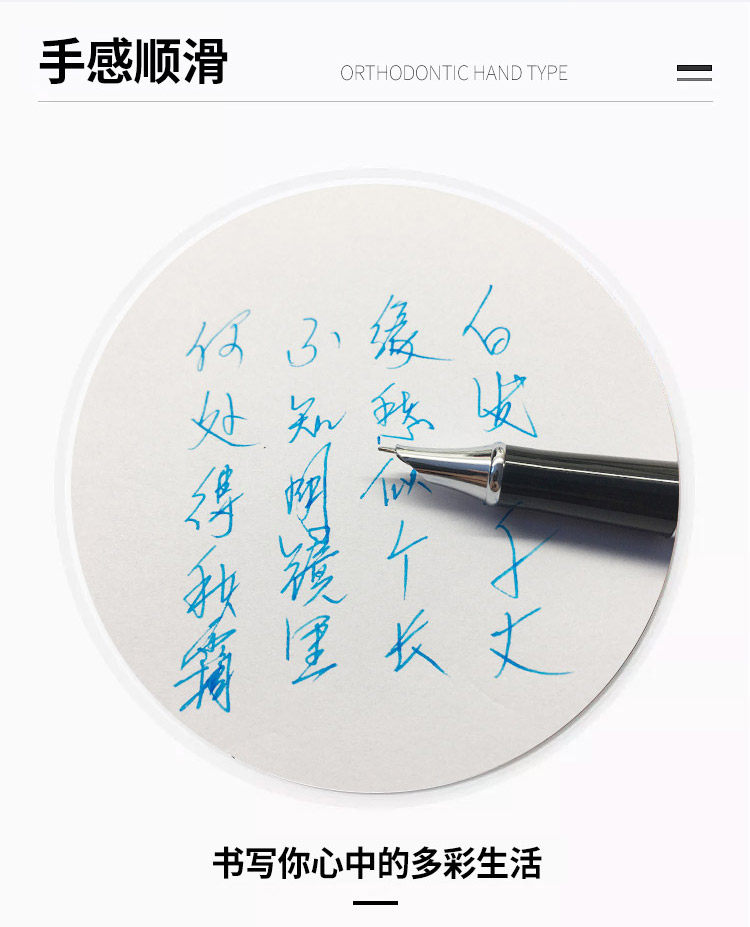 手感顺滑
ORTHODONTIC HAND TYPE
白发千丈
缘愁似个长
不知明镜里
何处得秋霜
书写你心中的多彩生活